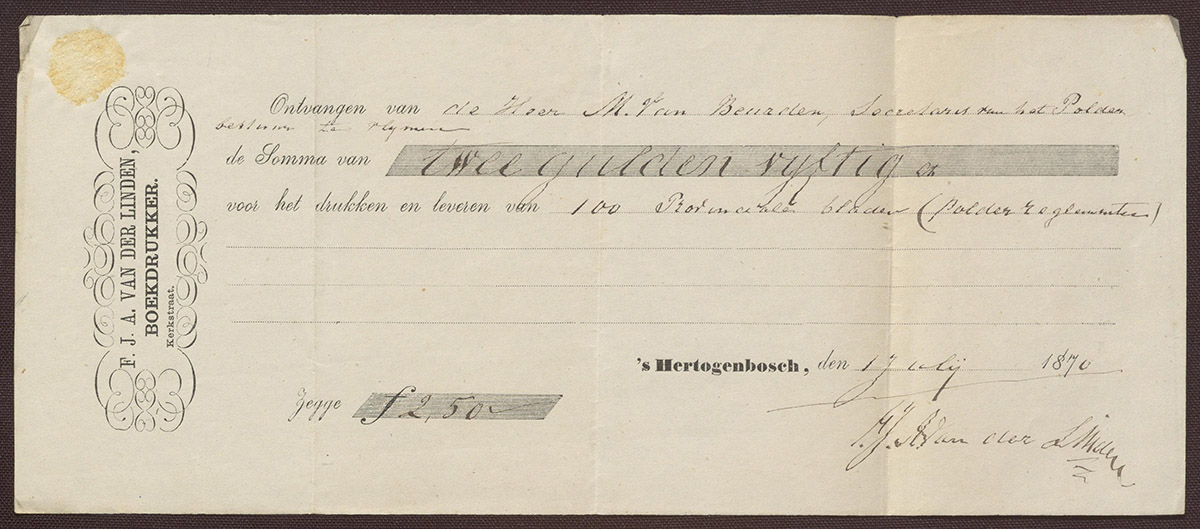 F. J. A. VAN DER LINDEN,
BOEKDRUKKER.
Kerkstraat.
Ontvangen van de Heer M. Van Beurden, Secretaris van het Polder
bestuur te Vlymen
de Somma van twee gulden vyftig ct
voor het drukken en leveren van 100 Provinciale bladen (Polder reglementen)
's Hertogenbosch, den 1 July 1870
Zegge f 2,50
F. J. A. Van der Linden